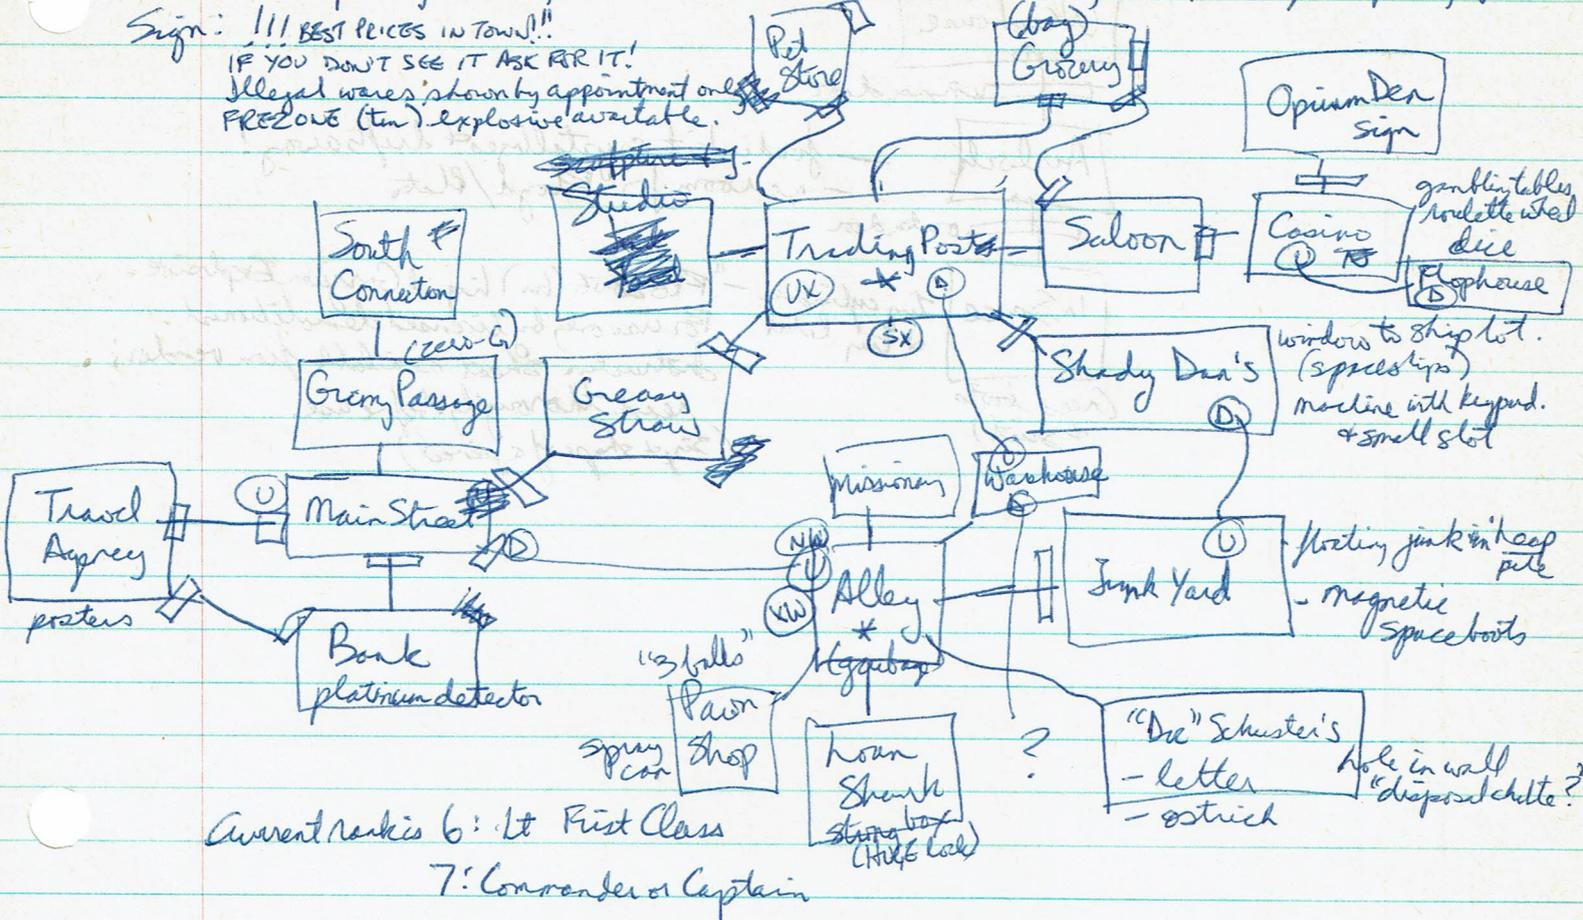 Sign: !!! BEST PRICES IN TOWN!!!
IF YOU DON'T SEE IT ASK FOR IT!
Illegal wares shown by appointment only
FREZONE (tm) explosive available.
Pet
Store
(bag)
Grocery
Opium Den
Sign
Studio
South
Connection
Trading Post
UX
D
SX
Saloon
Casino
gambling tables,
roulette wheel
dice
Flophouse
D
(zero-G)
Grimy Passage
Greasy
Straw
Shady Dan's
D
window to ship lot.
(spaceships)
machine with keypad.
& small slot
Travel
Agency
posters
U
Main Street
D
Missionary
Warehouse
U
NW
U
XW
Alley
Junk Yard
U
- floating junk in heap
pile
- magnetic
space boots
Bank
platinum detector
"3 balls"
(garbage)
Pawn
Shop
spray
can
Loan
Shark
strong box
(HUGE lock)
?
"Doc" Schuster's
- letter
- ostrich
hole in wall
"disposal chute?"
Current rank is 6: Lt First Class
7: Commander or Captain